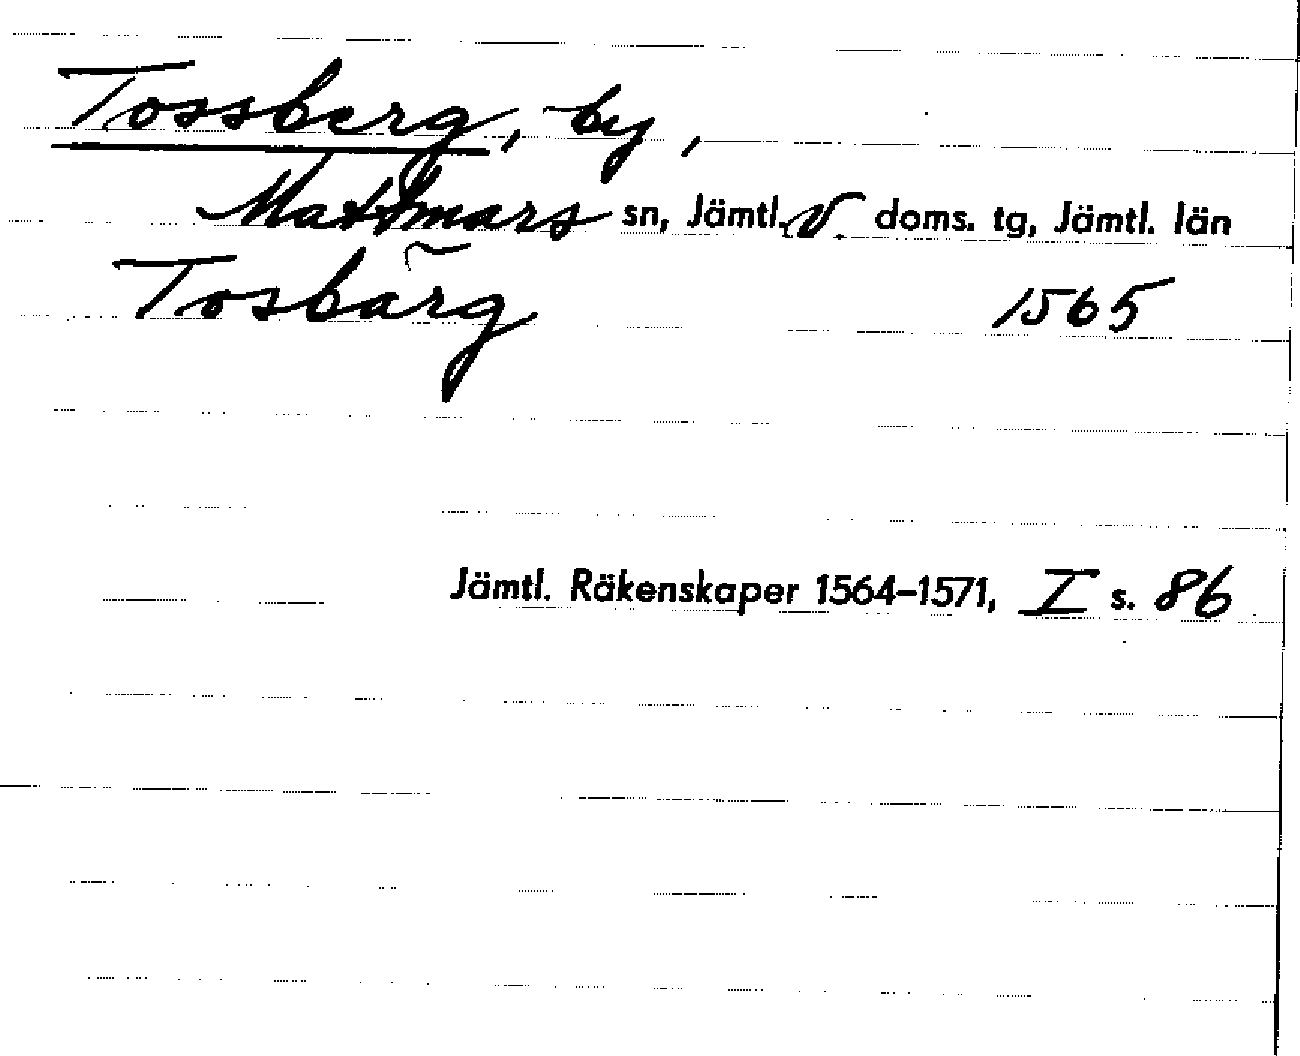 Tossberg, by,
Mattmars sn, Jämtl. V. doms. tg, Jämtl. län
Tosbärg 1565
Jämtl. Räkenskaper 1564-1571, I s. 86